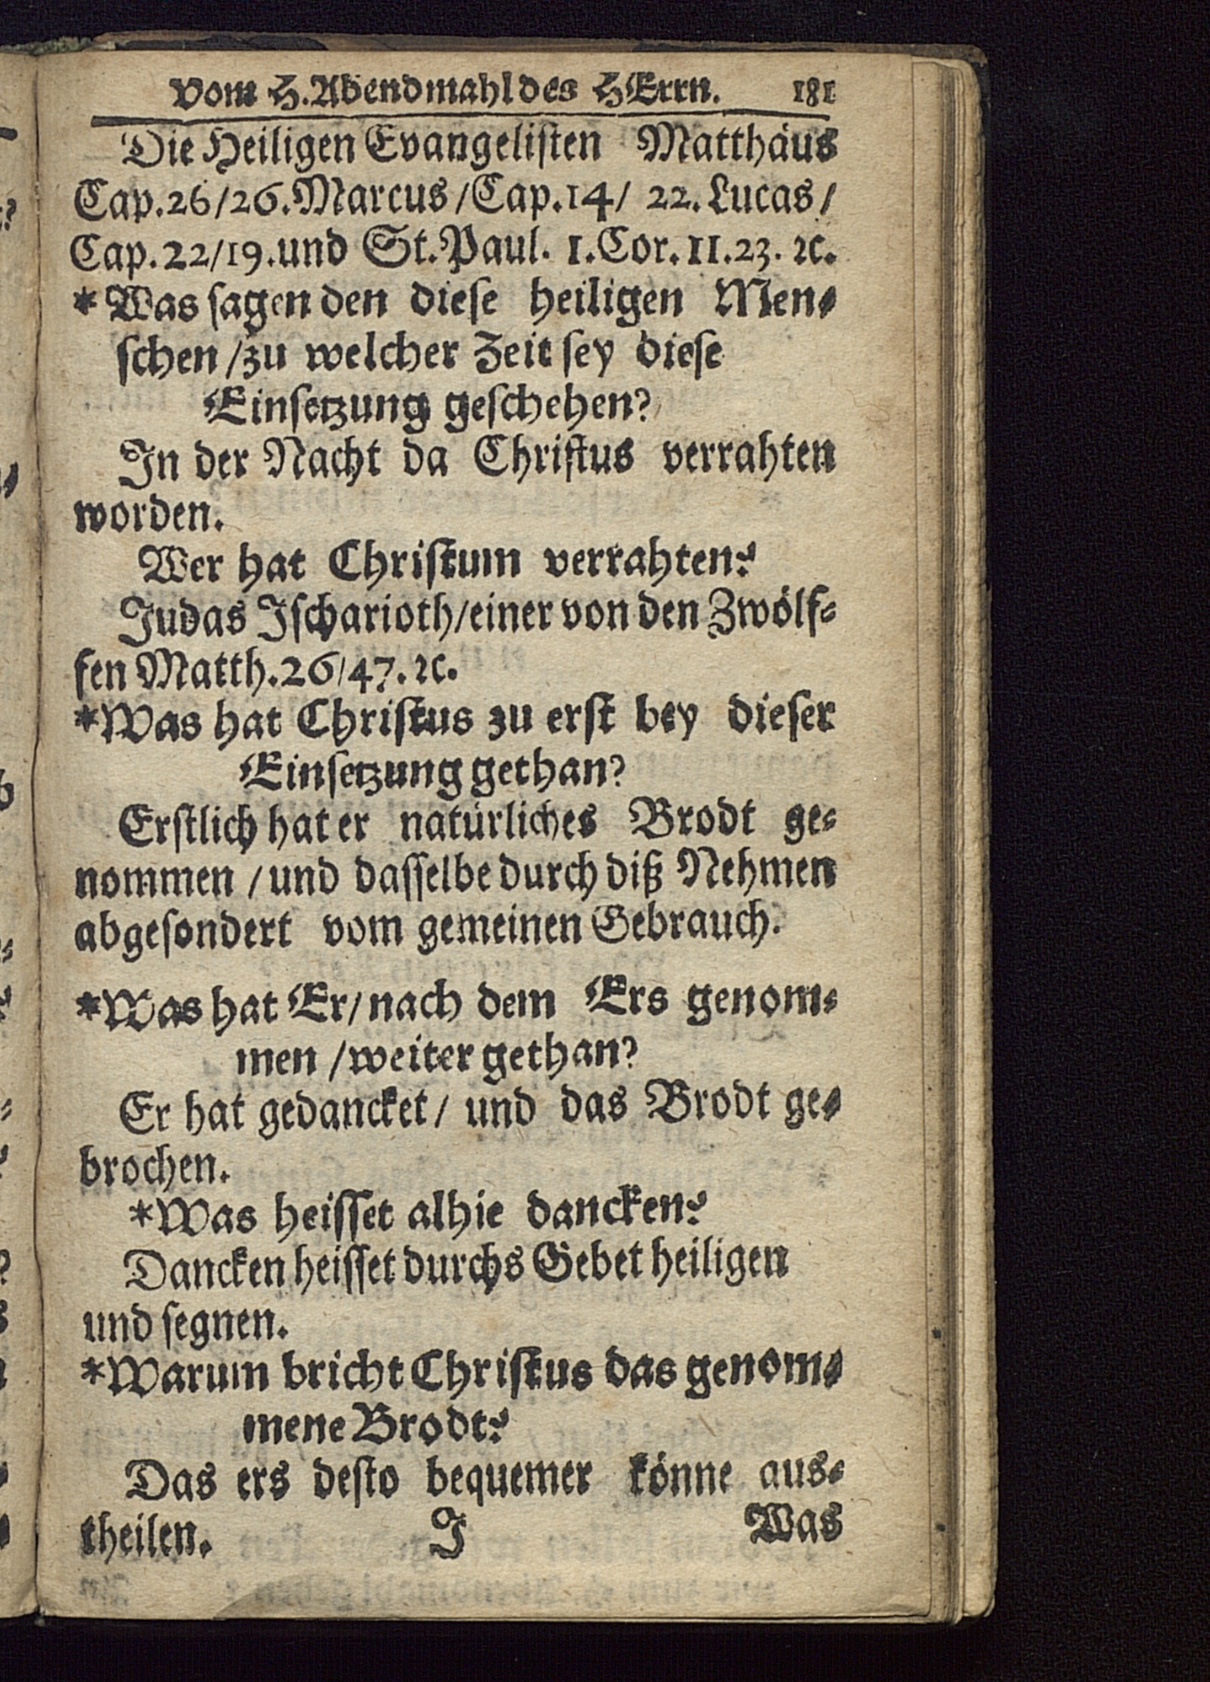 Vom H. Abendmahl des HErrn. 181
Die Heiligen Evangelisten Matthäus
Cap. 26/26. Marcus/Cap. 14/ 22. Lucas/
Cap. 22/19. und St. Paul. 1. Cor. 11. 23. ꝛc.
*Was sagen den diese heiligen Men-
schen/zu welcher Zeit sey diese
Einsetzung geschehen?
In der Nacht da Christus verrahten
worden.
Wer hat Christum verrahten?
Judas Ischarioth/einer von den Zwölf-
fen Matth. 26/47. ꝛc.
*Was hat Christus zu erst bey dieser
Einsetzung gethan?
Erstlich hat er natürliches Brodt ge-
nommen/und dasselbe durch diß Nehmen
abgesondert vom gemeinen Gebrauch.
*Was hat Er/nach dem Ers genom-
men/weiter gethan?
Er hat gedancket/ und das Brodt ge-
brochen.
*Was heisset alhie dancken?
Dancken heisset durchs Gebet heiligen
und segnen.
*Warum bricht Christus das genom-
mene Brodt?
Das ers desto bequemer könne aus-
theilen. J Was